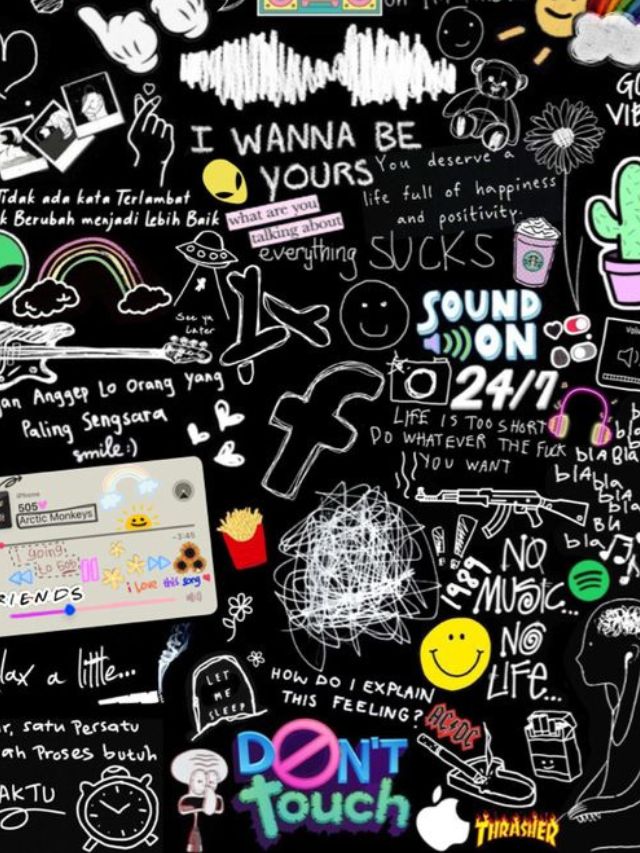 I WANNA BE
YOURS
You deserve a
life full of happiness
and positivity.
Tidak ada kata Terlambat
Berubah menjadi Lebih Baik
what are you
talking about
everything SUCKS
See ya
Later
SOUND
ON
24/7
Anggep Lo Orang yang
Paling Sengsara
smile:)
LIFE IS TOO SHORT
DO WHATEVER THE FUCK
YOU WANT
bla Bla
bla
bla
Bla
bla
iPhone
505
Arctic Monkeys
-3:45
going
to 505
i Love this song
1989
NO
MUSIC...
NO
LIFE...
a little...
LET
ME
SLEEP
HOW DO I EXPLAIN
THIS FEELING?
AC/DC
satu Persatu
Proses butuh
DON'T
touch
THRASHER